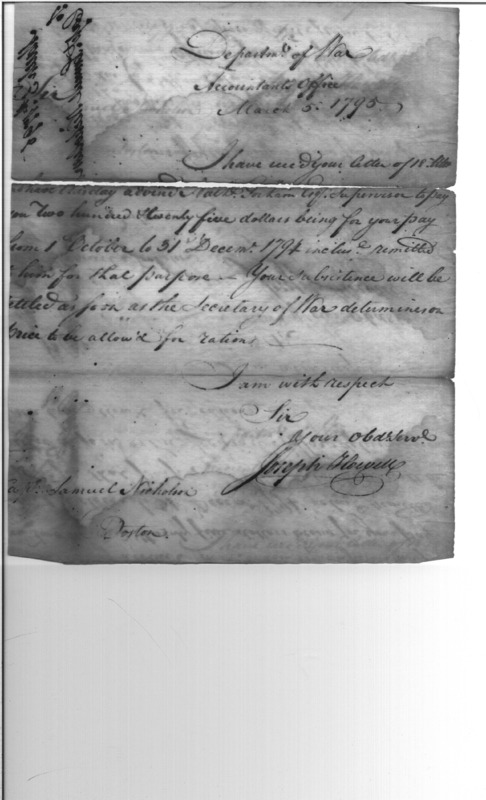 Departmt. of War
Accountants Office
March 5. 1795
Sir
I have reced your letter of 18.
this day advised Nath. Gorham Esqr. Supervisor to pay
you Two hundred & twenty five dollars being for your pay
from 1 October to 31 Decemr. 1794 inclusd. remitted
him for that purpose — Your subsistence will be
settled as soon as the Secretary of War determines on
price to be allow'd for rations
I am with respect
Sir
Your Obd. Servt.
Joseph Howell
Capt. Samuel Nicholson
Boston.